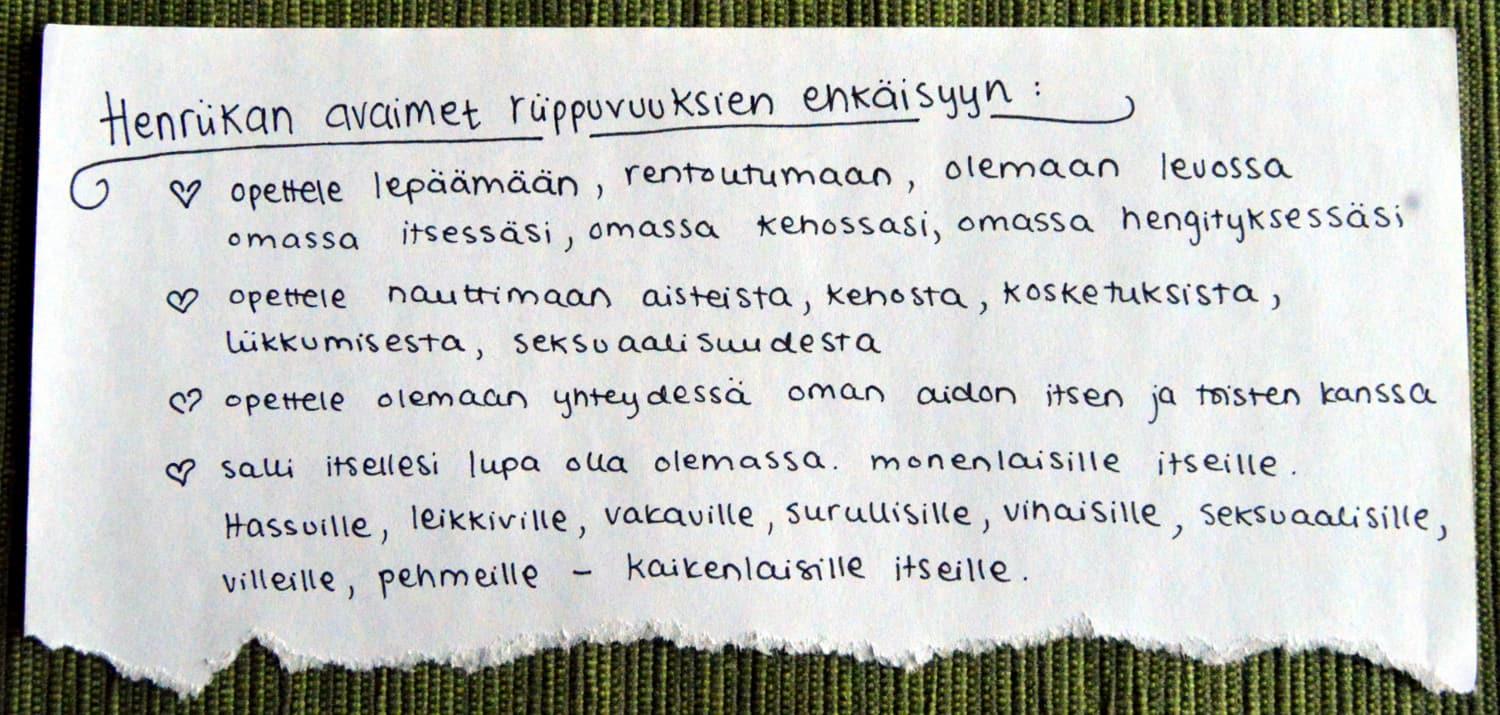 Henriikan avaimet riippuvuuksien ehkäisyyn :
♡ opettele lepäämään, rentoutumaan, olemaan levossa
omassa itsessäsi, omassa kehossasi, omassa hengityksessäsi
♡ opettele nauttimaan aisteista, kehosta, kosketuksista,
liikkumisesta, seksuaalisuudesta
♡ opettele olemaan yhteydessä oman aidon itsen ja toisten kanssa
♡ salli itsellesi lupa olla olemassa. monenlaisille itseille.
Hassuille, leikkiville, vakaville, surullisille, vihaisille, seksuaalisille,
villeille, pehmeille – kaikenlaisille itseille.